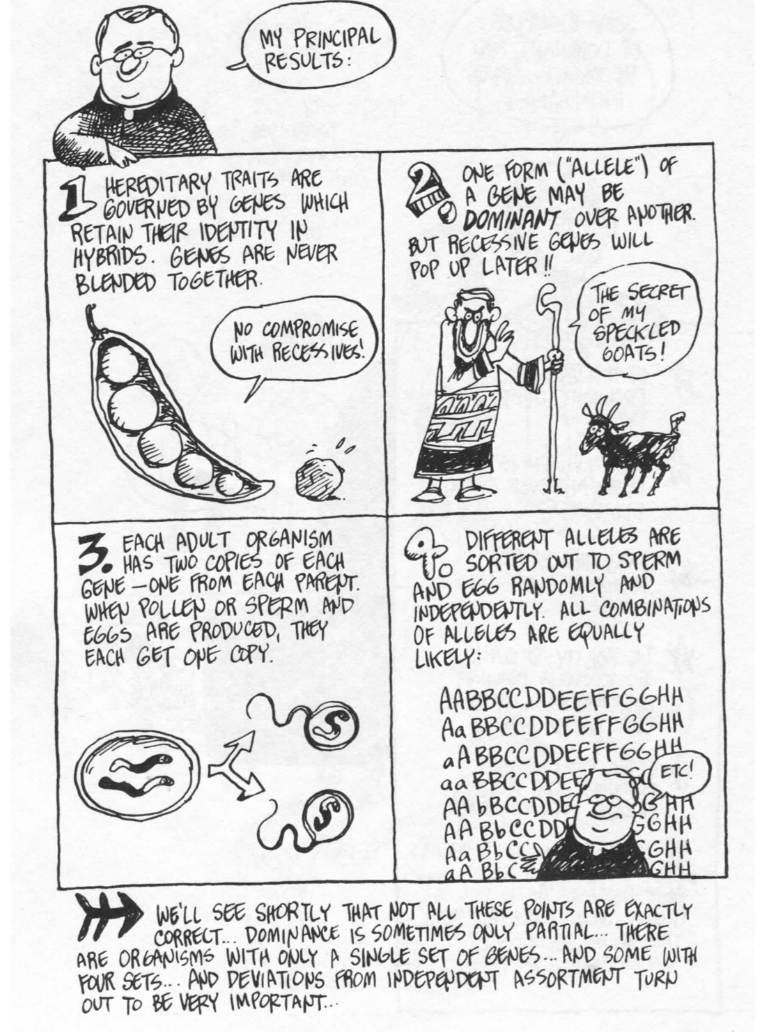 MY PRINCIPAL
RESULTS:
1 HEREDITARY TRAITS ARE
GOVERNED BY GENES WHICH
RETAIN THEIR IDENTITY IN
HYBRIDS. GENES ARE NEVER
BLENDED TOGETHER.
NO COMPROMISE
WITH RECESSIVES!
2. ONE FORM ("ALLELE") OF
A GENE MAY BE
DOMINANT OVER ANOTHER.
BUT RECESSIVE GENES WILL
POP UP LATER!!
THE SECRET
OF MY
SPECKLED
GOATS!
3. EACH ADULT ORGANISM
HAS TWO COPIES OF EACH
GENE—ONE FROM EACH PARENT.
WHEN POLLEN OR SPERM AND
EGGS ARE PRODUCED, THEY
EACH GET ONE COPY.
4. DIFFERENT ALLELES ARE
SORTED OUT TO SPERM
AND EGG RANDOMLY AND
INDEPENDENTLY. ALL COMBINATIONS
OF ALLELES ARE EQUALLY
LIKELY:
AABBCCDDEEFFGGHH
AaBBCCDDEEFFGGHH
aABBCCDDEEFFGGHH
aaBBCCDDEE
ETC!
AAbBCCDDE GGHH
AABbCCDD GGHH
AaBbCC GHH
aABbC GHH
WE'LL SEE SHORTLY THAT NOT ALL THESE POINTS ARE EXACTLY
CORRECT... DOMINANCE IS SOMETIMES ONLY PARTIAL... THERE
ARE ORGANISMS WITH ONLY A SINGLE SET OF GENES... AND SOME WITH
FOUR SETS... AND DEVIATIONS FROM INDEPENDENT ASSORTMENT TURN
OUT TO BE VERY IMPORTANT...